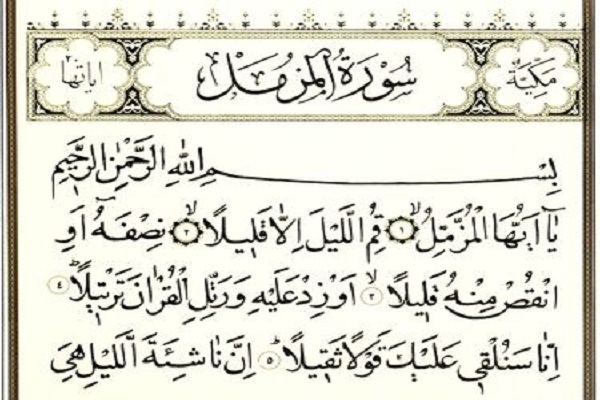 مكية سورة المزمل آياتها ٢٠
بِسْمِ اللهِ الرَّحْمٰنِ الرَّحِيمِ
يَا أَيُّهَا الْمُزَّمِّلُ ﴿١﴾ قُمِ الَّيْلَ اِلَّا قَلِيلًا ﴿٢﴾ نِصْفَهُ اَوِ
انْقُصْ مِنْهُ قَلِيلًا ﴿٣﴾ اَوْ زِدْ عَلَيْهِ وَرَتِّلِ الْقُرْاٰنَ تَرْتِيلًا ﴿٤﴾
اِنَّا سَنُلْقِي عَلَيْكَ قَوْلًا ثَقِيلًا ﴿٥﴾ اِنَّ نَاشِئَةَ الَّيْلِ هِيَ